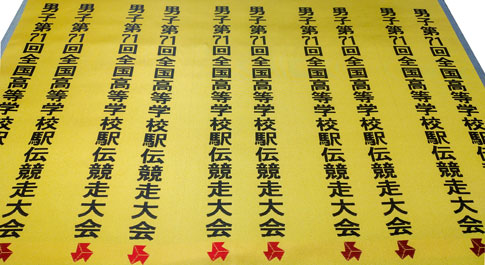 男子第71回全国高等学校駅伝競走大会
男子第71回全国高等学校駅伝競走大会
男子第71回全国高等学校駅伝競走大会
男子第71回全国高等学校駅伝競走大会
男子第71回全国高等学校駅伝競走大会
男子第71回全国高等学校駅伝競走大会
男子第71回全国高等学校駅伝競走大会
男子第71回全国高等学校駅伝競走大会